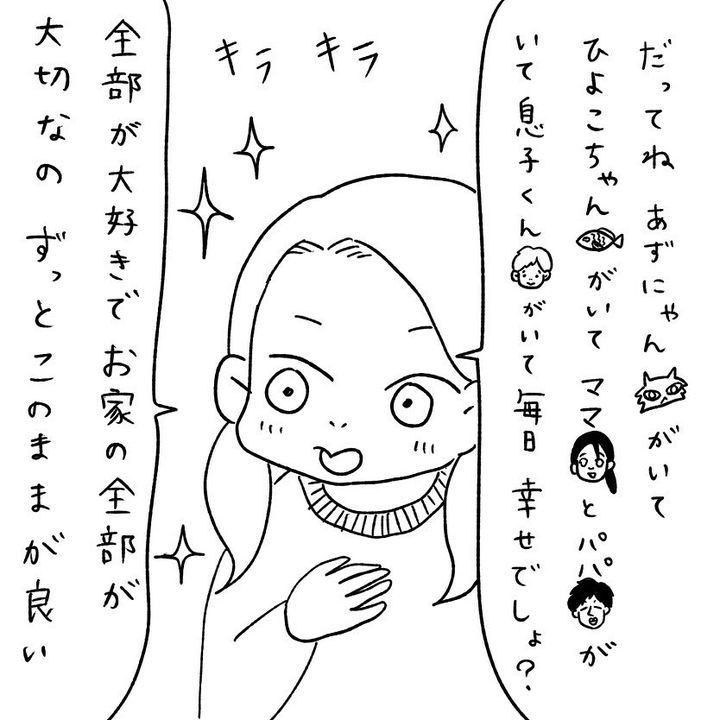 だってね あずにゃんがいて
ひよこちゃんがいて ママとパパが
いて息子くんがいて毎日 幸せでしょ?
キラ キラ
全部が大好きでお家の全部が
大切なの ずっとこのままが良い